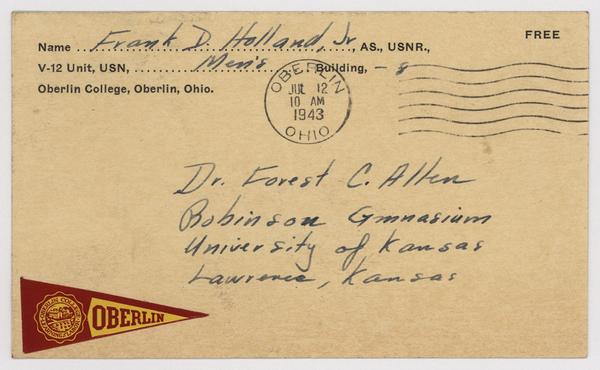 FREE
Name Frank D. Holland, Jr, AS., USNR.,
V-12 Unit, USN, Men's Building, - 8
Oberlin College, Oberlin, Ohio.
OBERLIN
JUL 12
10 AM
1943
OHIO
Dr. Forest C. Allen
Robinson Gmnasium
University of Kansas
Lawrence, Kansas
OBERLIN COLLEGE
OBERLIN